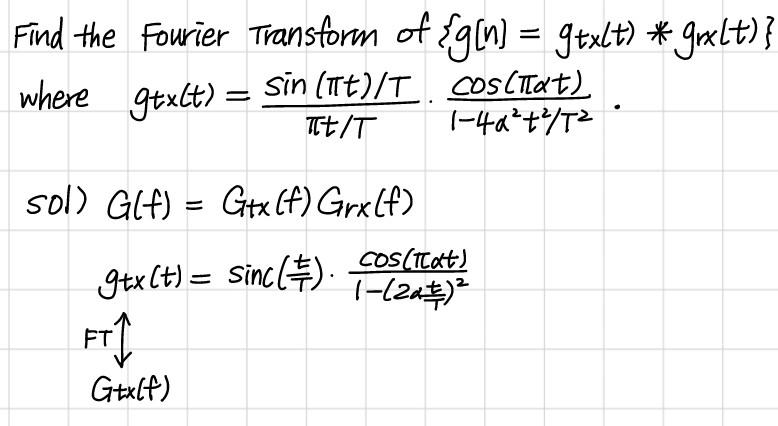 Find the Fourier Transform of {g[n] = gtx(t) * grx(t)}
where gtx(t) = sin(πt)/T / πt/T · cos(παt) / 1-4α²t²/T² .
sol) G(f) = Gtx(f) Grx(f)
gtx(t) = sinc(t/T) · cos(παt) / 1-(2α t/T)²
FT
Gtx(f)